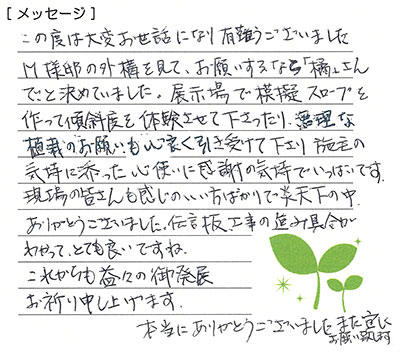 [ メッセージ ]
この度は大変お世話になり有難うございました
M様邸の外構を見て、お願いするなら「橘」さん
でと決めていました。展示場で模擬スロープを
作って傾斜度を体験させて下さったり、無理な
植栽のお願いも心良く引き受けて下さり 施主の
気持に添った心使いに感謝の気持でいっぱいです。
現場の皆さんも感じのいい方ばかりで炎天下の中
ありがとうございました。伝言板、工事の進み具合が
わかって、とても良いですね。
これからも益々の御発展
お祈り申し上げます。
本当にありがとうございました また宜しく
お願い致します